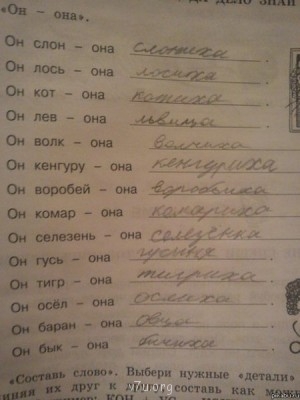 ДЕЛО ЗНАЙ
«Он – она».
Он слон – она слониха
Он лось – она лосиха
Он кот – она котиха
Он лев – она львица
Он волк – она волчиха
Он кенгуру – она кенгуриха
Он воробей – она воробьиха
Он комар – она комариха
Он селезень – она селезёнка
Он гусь – она гусиха
Он тигр – она тигриха
Он осёл – она ослиха
Он баран – она овца
Он бык – она бычиха
«Составь слово». Выбери нужные «детали»
их друг к составь как можн
КОН